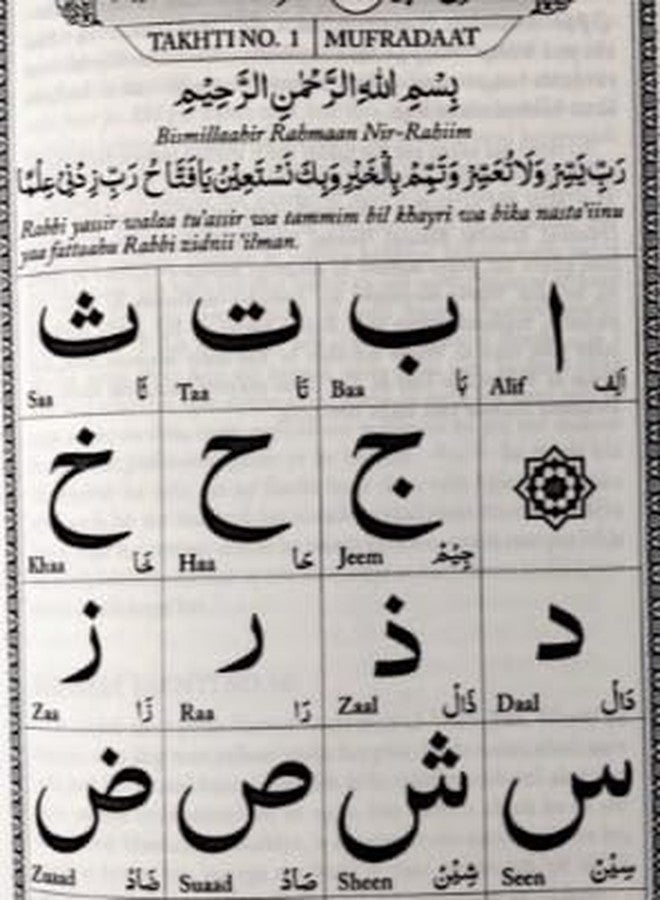 TAKHTI NO. 1 | MUFRADAAT
بِسْمِ اللهِ الرَّحْمٰنِ الرَّحِيْمِ
Bismillaahir Rahmaan Nir-Rahiim
رَبِّ يَسِّرْ وَلَا تُعَسِّرْ وَتَمِّمْ بِالْخَيْرِ وَبِكَ نَسْتَعِيْنُ يَا فَتَّاحُ رَبِّ زِدْنِيْ عِلْمًا
Rabbi yassir walaa tu'assir wa tammim bil khayri wa bika nasta'iinu
yaa fattaahu Rabbi zidnii 'ilman.
ا ب ت ث
Alif اَلِف Baa بَا Taa تَا Saa ثَا
ج ح خ
Jeem جِيْمْ Haa حَا Khaa خَا
د ذ ر ز
Daal دَالْ Zaal ذَالْ Raa رَا Zaa زَا
س ش ص ض
Seen سِيْنْ Sheen شِيْنْ Suaad صَادْ Zuaad ضَادْ